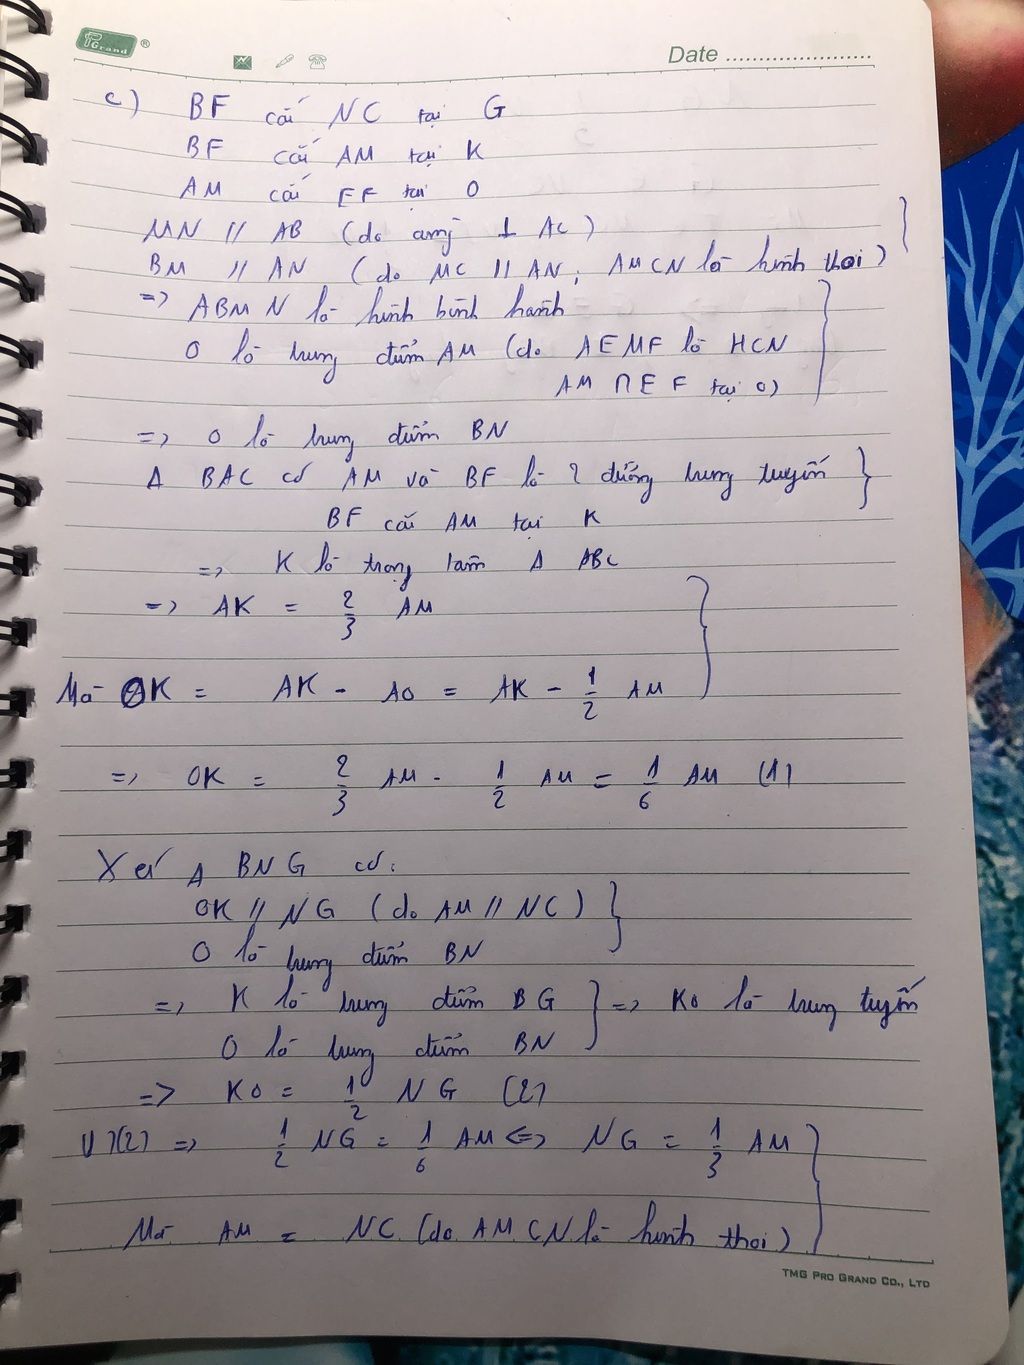 Grand ®
Date
c) BF cắt NC tại G
BF cắt AM tại K
AM cắt EF tại O
MN // AB (do cùng ⊥ AC)
BM // AN (do MC // AN; AMCN là hình thoi)
=> ABMN là hình bình hành
O là trung điểm AM (do AEMF là HCN
AM ∩ EF tại O)
=> O là trung điểm BN
Δ BAC có AM và BF là 2 đường trung tuyến
BF cắt AM tại K
=> K là trọng tâm Δ ABC
=> AK = 2/3 AM
Mà OK = AK - AO = AK - 1/2 AM
=> OK = 2/3 AM - 1/2 AM = 1/6 AM (1)
Xét Δ BNG có:
OK // NG (do AM // NC)
O là trung điểm BN
=> K là trung điểm BG } => KO là trung tuyến
O là trung điểm BN
=> KO = 1/2 NG (2)
1)(2) => 1/2 NG = 1/6 AM <=> NG = 1/3 AM
Mà AM = NC (do AMCN là hình thoi)
TMG PRO GRAND CO., LTD